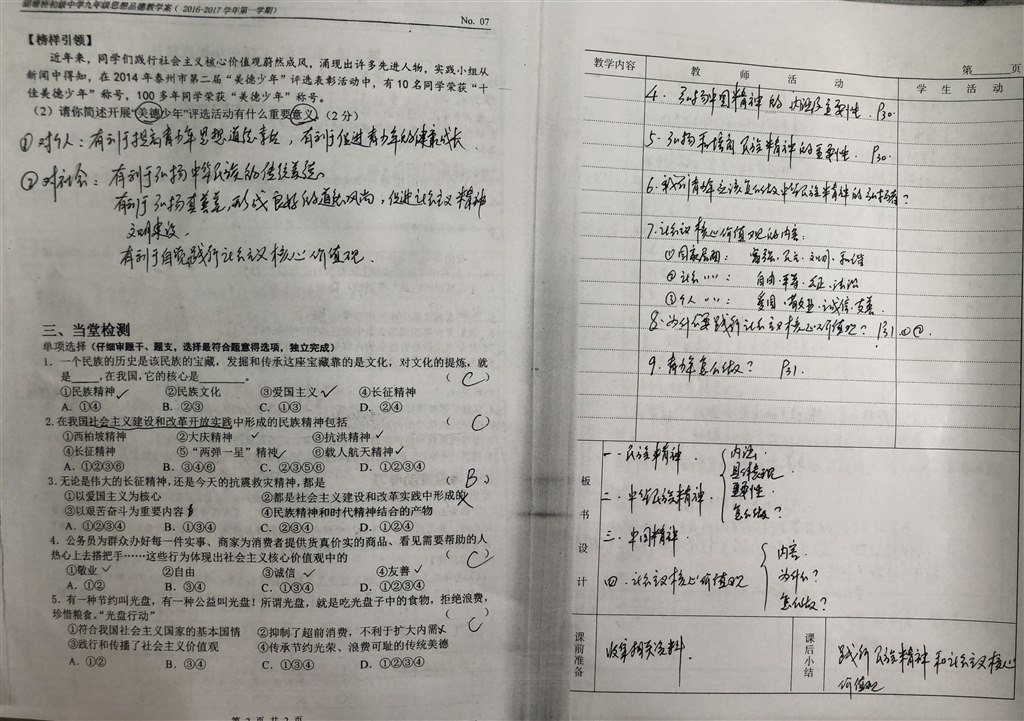 初级中学九年级思想品德教学案（2016-2017学年第一学期）
No. 07
【榜样引领】
近年来，同学们践行社会主义核心价值观蔚然成风，涌现出许多先进人物，实践小组从
新闻中得知，在 2014 年泰州市第二届“美德少年”评选表彰活动中，有 10 名同学荣获“十
佳美德少年”称号，100 多年同学荣获“美德少年”称号。
（2）请你简述开展“美德少年”评选活动有什么重要意义。（2 分）
①对个人：有利于提高青少年思想道德素质，有利于促进青少年的健康成长．
②对社会：有利于弘扬中华民族的传统美德。
有利于弘扬真善美，形成良好的道德风尚，促进社会主义精神
文明建设．
有利于自觉践行社会主义核心价值观．
三、当堂检测
单项选择（仔细审题干、题支，选择最符合题意得选项，独立完成）
1．一个民族的历史是该民族的宝藏，发掘和传承这座宝藏靠的是文化，对文化的提炼，就
是____，在我国，它的核心是______。 （ C ）
①民族精神✓ ②民族文化 ③爱国主义✓ ④长征精神
A．①④ B．②③ C．①③ D．②④
2. 在我国社会主义建设和改革开放实践中形成的民族精神包括 （ C ）
①西柏坡精神 ②大庆精神 ✓ ③抗洪精神 ✓
④长征精神 ⑤“两弹一星”精神✓ ⑥载人航天精神✓
A．①②③⑥ B．③④⑥ C．②③⑤⑥ D．①②③④
3. 无论是伟大的长征精神，还是今天的抗震救灾精神，都是 （ B ）
①以爱国主义为核心 ②都是社会主义建设和改革实践中形成的
③以艰苦奋斗为重要内容 ④民族精神和时代精神结合的产物
A．①②③④ B．①③④ C．②③④ D．①②④
4. 公务员为群众办好每一件实事、商家为消费者提供货真价实的商品、看见需要帮助的人
热心上去搭把手……这些行为体现出社会主义核心价值观中的 （ C ）
①敬业 ✓ ②自由 ③诚信 ✓ ④友善 ✓
A．①② B．③④ C．①③④ D．①②③④
5. 有一种节约叫光盘，有一种公益叫光盘！所谓光盘，就是吃光盘子中的食物，拒绝浪费，
珍惜粮食。“光盘行动” （ C
①符合我国社会主义国家的基本国情 ②抑制了超前消费，不利于扩大内需x
③践行和传播了社会主义价值观 ④传承节约光荣、浪费可耻的传统美德
A．①② B．③④ C．①③④ D．①②③④
第 2 页 共 2 页
第 页
教学内容 教 师 活 动 学 生 活 动
4．弘扬中国精神的内涵及重要性．P30．
5．弘扬和培育民族精神的重要性．P30．
6．我们青少年应该怎么做中华民族精神的弘扬者？
7．社会主义核心价值观的内容．
①国家层面： 富强、民主、文明、和谐
②社会〃〃： 自由、平等、公正、法治
③个人〃〃： 爱国、敬业、诚信、友善
8．为什么要践行社会主义核心价值观？P31．①②．
9．青少年怎么做？ P31．
板书设计
一．民族精神． 内涵． 具体表现． 重要性． 怎么做？
二．中华民族精神．
三．中国精神．
四．社会主义核心价值观 内容． 为什么？ 怎么做？
课前准备 收集相关资料．
课后小结 践行民族精神和社会主义核心
价值观